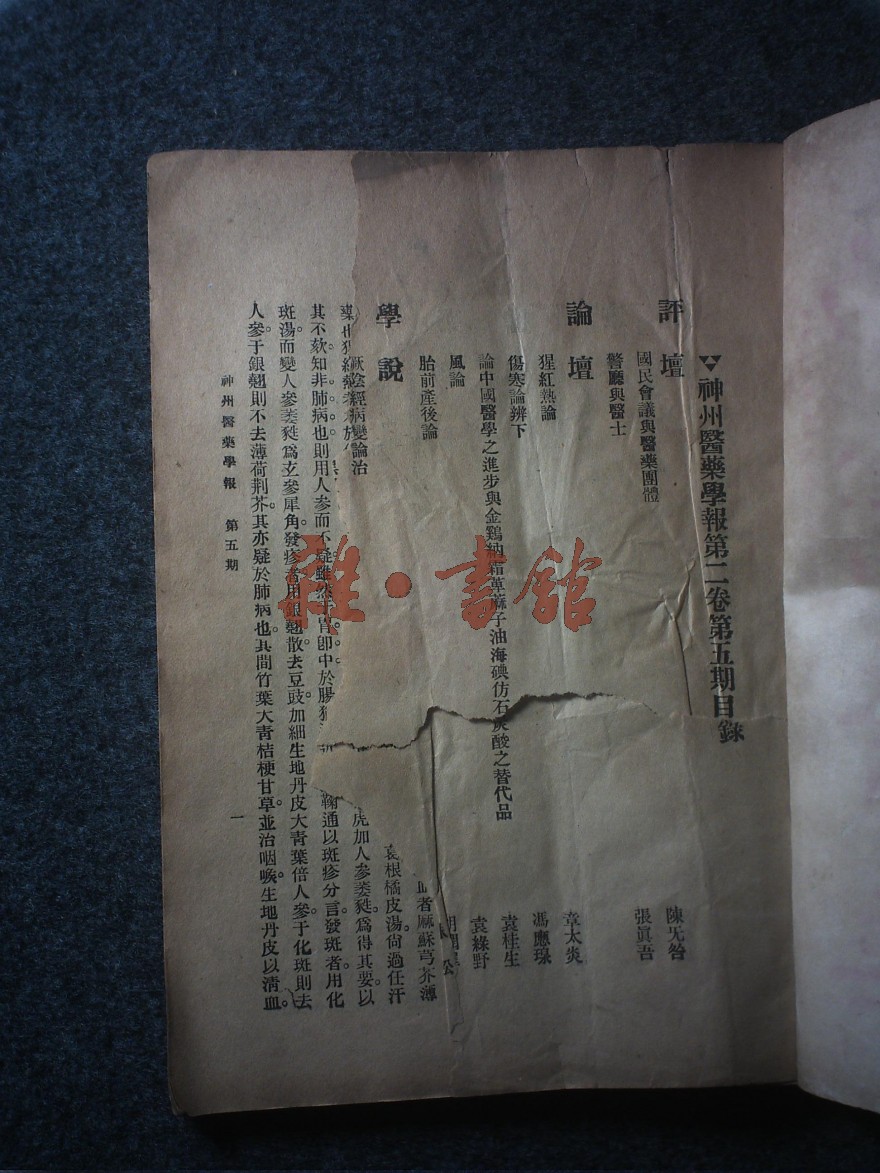 神州醫藥學報第二卷第五期目錄
評壇
國民會議與醫藥團體
陳无咎
警廳與醫士
張眞吾
論壇
猩紅熱論
章太炎
傷寒論辨下
馮應琭
論中國醫學之進步與金鷄納霜萆麻子油海碘仿石炭酸之替代品
袁桂生
風論
袁綠野
胎前產後論
學說
厥陰經病變論治
者麻蘇芎芥薄
根橘皮湯尙過任汗
藥也
虎加人參葳蕤爲得其要以
其不欬知非肺病也則用人參而不疑雖然于胃卽中於腸
鞠通以斑疹分言。發斑者用化
斑湯。而變人參葳蕤爲玄參犀角。發疹者用銀翹散去豆豉加細生地丹皮大青葉倍人參。于化斑則去
人參。于銀翹則不去薄荷荆芥。其亦疑於肺病也。其間竹葉大青桔梗甘草並治咽喉。生地丹皮以淸血。
神州醫藥學報 第五期
一
雜·書館